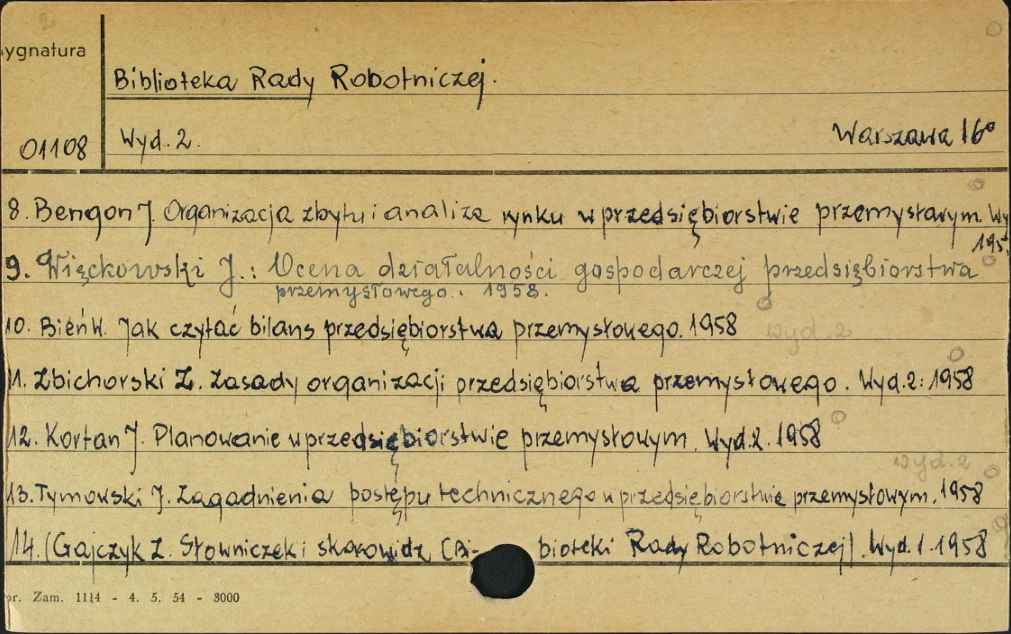 2
ygnatura
Biblioteka Rady Robotniczej.
01108 Wyd. 2. Warszawa 16°
8. Bengon J. Organizacja zbytu i analiza rynku w przedsiębiorstwie przemysłowym. Wy
195
9. Więckowski J.: Ocena działalności gospodarczej przedsiębiorstwa
przemysłowego. 1958.
10. Bień W. Jak czytać bilans przedsiębiorstwa przemysłowego. 1958 wyd. 2
11. Zbichorski Z. Zasady organizacji przedsiębiorstwa przemysłowego. Wyd. 2: 1958
12. Kortan J. Planowanie w przedsiębiorstwie przemysłowym. Wyd. 2. 1958
wyd. 2
13. Tymowski J. Zagadnienia postępu technicznego w przedsiębiorstwie przemysłowym. 1958
14. (Gajczyk Z. Słowniczek i skorowidz (Bi- bioteki Rady Robotniczej). Wyd. 1. 1958
or. Zam. 1114 - 4. 5. 54 - 3000